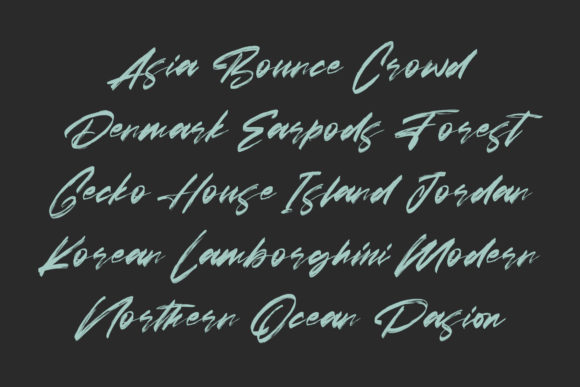 Asia Bounce Crowd
Denmark Earpods Forest
Gecko House Island Jordan
Korean Lamborghini Modern
Northern Ocean Pasion